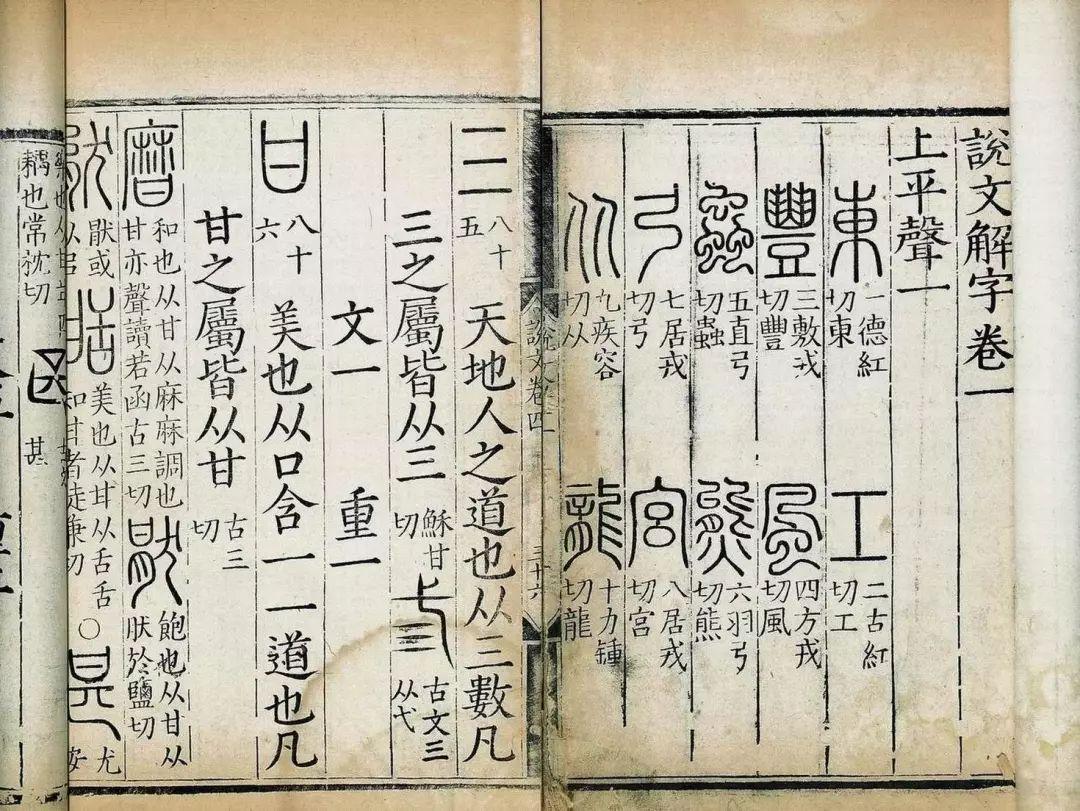 說文解字卷一
上平聲一
東 一德紅切東 工 二古紅切工
豐 三敷戎切豐 風 四方戎切風
蟲 五直弓切蟲 熊 六羽弓切熊
弓 七居戎切弓 宮 八居戎切宮
从 九疾容切从 龍 十力鍾切龍
說文卷四 三十六
三 八十五 天地人之道也从三數凡
三之屬皆从三 穌甘切 弎 古文三从弋
文一 重一
甘 八十六 美也从口含一一道也凡
甘之屬皆从甘 古三切
𤯌 和也从甘从麻麻調也甘亦聲讀若函古三切 猒 飽也从甘从肰於鹽切
猒或从㠯 甛 美也从甘从舌舌知甘者徒兼切 ○ 甚 尤安
耦也常枕切 甚